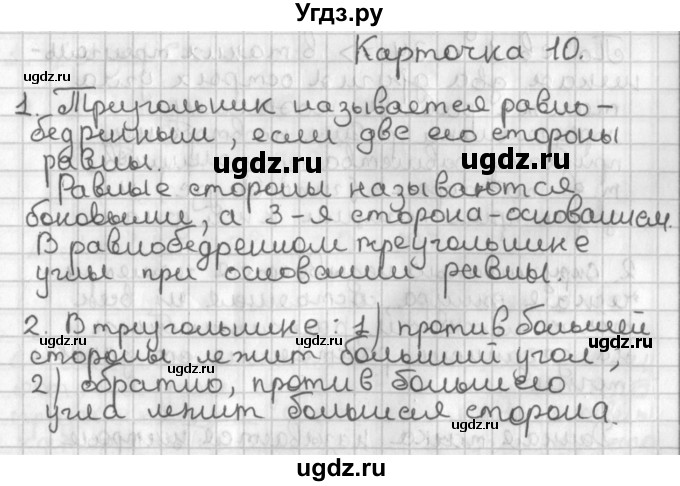 Угдз.ру
Карточка 10.
ugdz.ru ugdz.ru
1. Треугольник называется равно-
бедренным, если две его стороны
равны.
ugdz.ru ugdz.ru
Равные стороны называются
боковыми, а 3-я сторона-основанием.
В равнобедренном треугольнике
ugdz.ru
углы при основании равны.
ugdz.ru
2. В треугольнике: 1) против большей
стороны лежит больший угол,
ugdz.ru ugdz.ru
2) обратно, против большего
угла лежит большая сторона.
ugdz.ru
ugdz.ru